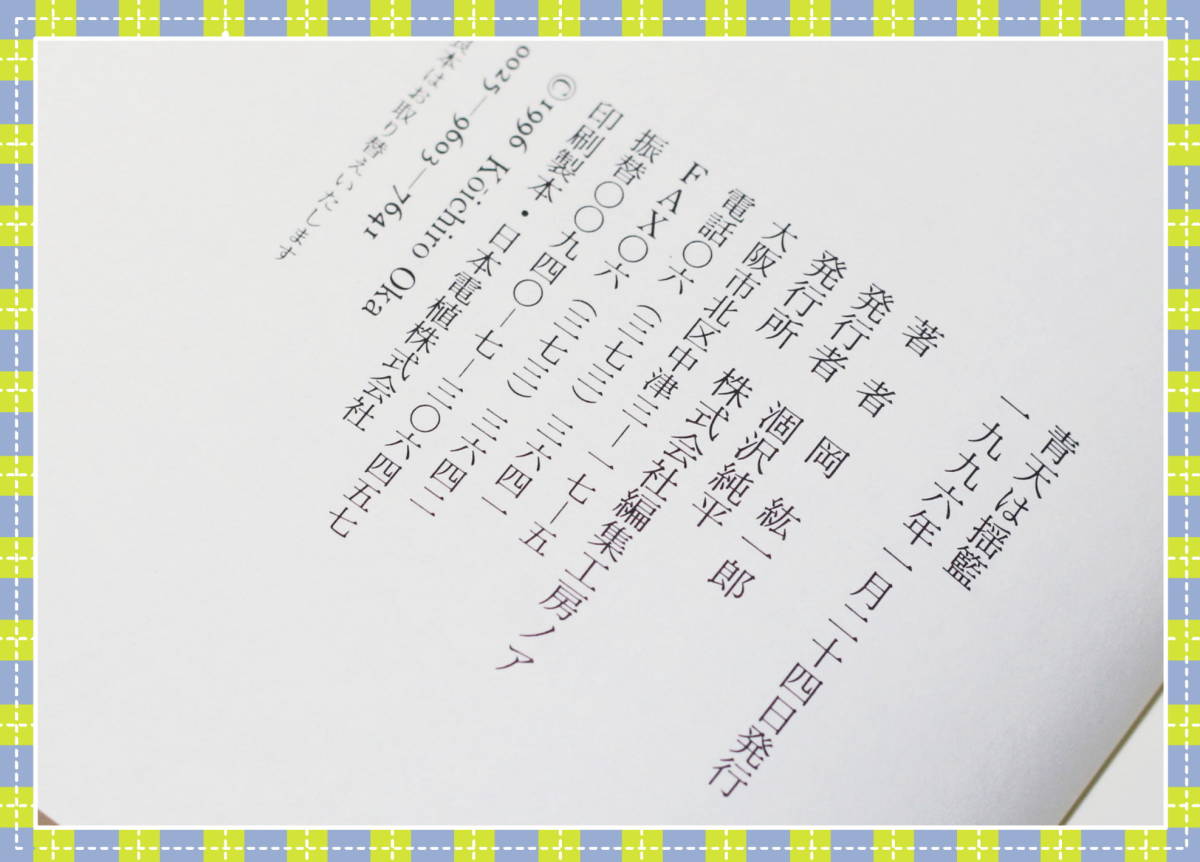 青天は揺籃
一九九六年二月二十四日発行
著　者　岡　紘一郎
発行者　涸沢純平
発行所　株式会社編集工房ノア
大阪市北区中津三―一七―五
電話〇六（三七三）三六四一
ＦＡＸ〇六（三七三）三六四二
振替〇〇九四〇―七―三〇六四五七
印刷製本・日本電植株式会社
©1996 Koichiro Oka
0025―9603―7641
本はお取り替えいたします